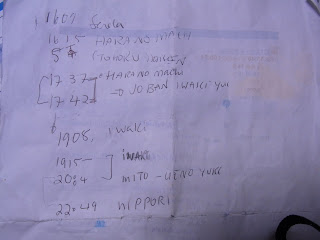 1609 Sendai
1615 HARANOMACHI
1737 HARANOMACHI
1742 → JOBAN IWAKI YUKI
1908, iwaki
1915 IWAKI
2024 MITO - UENO YUKI
22:49 NIPPORI